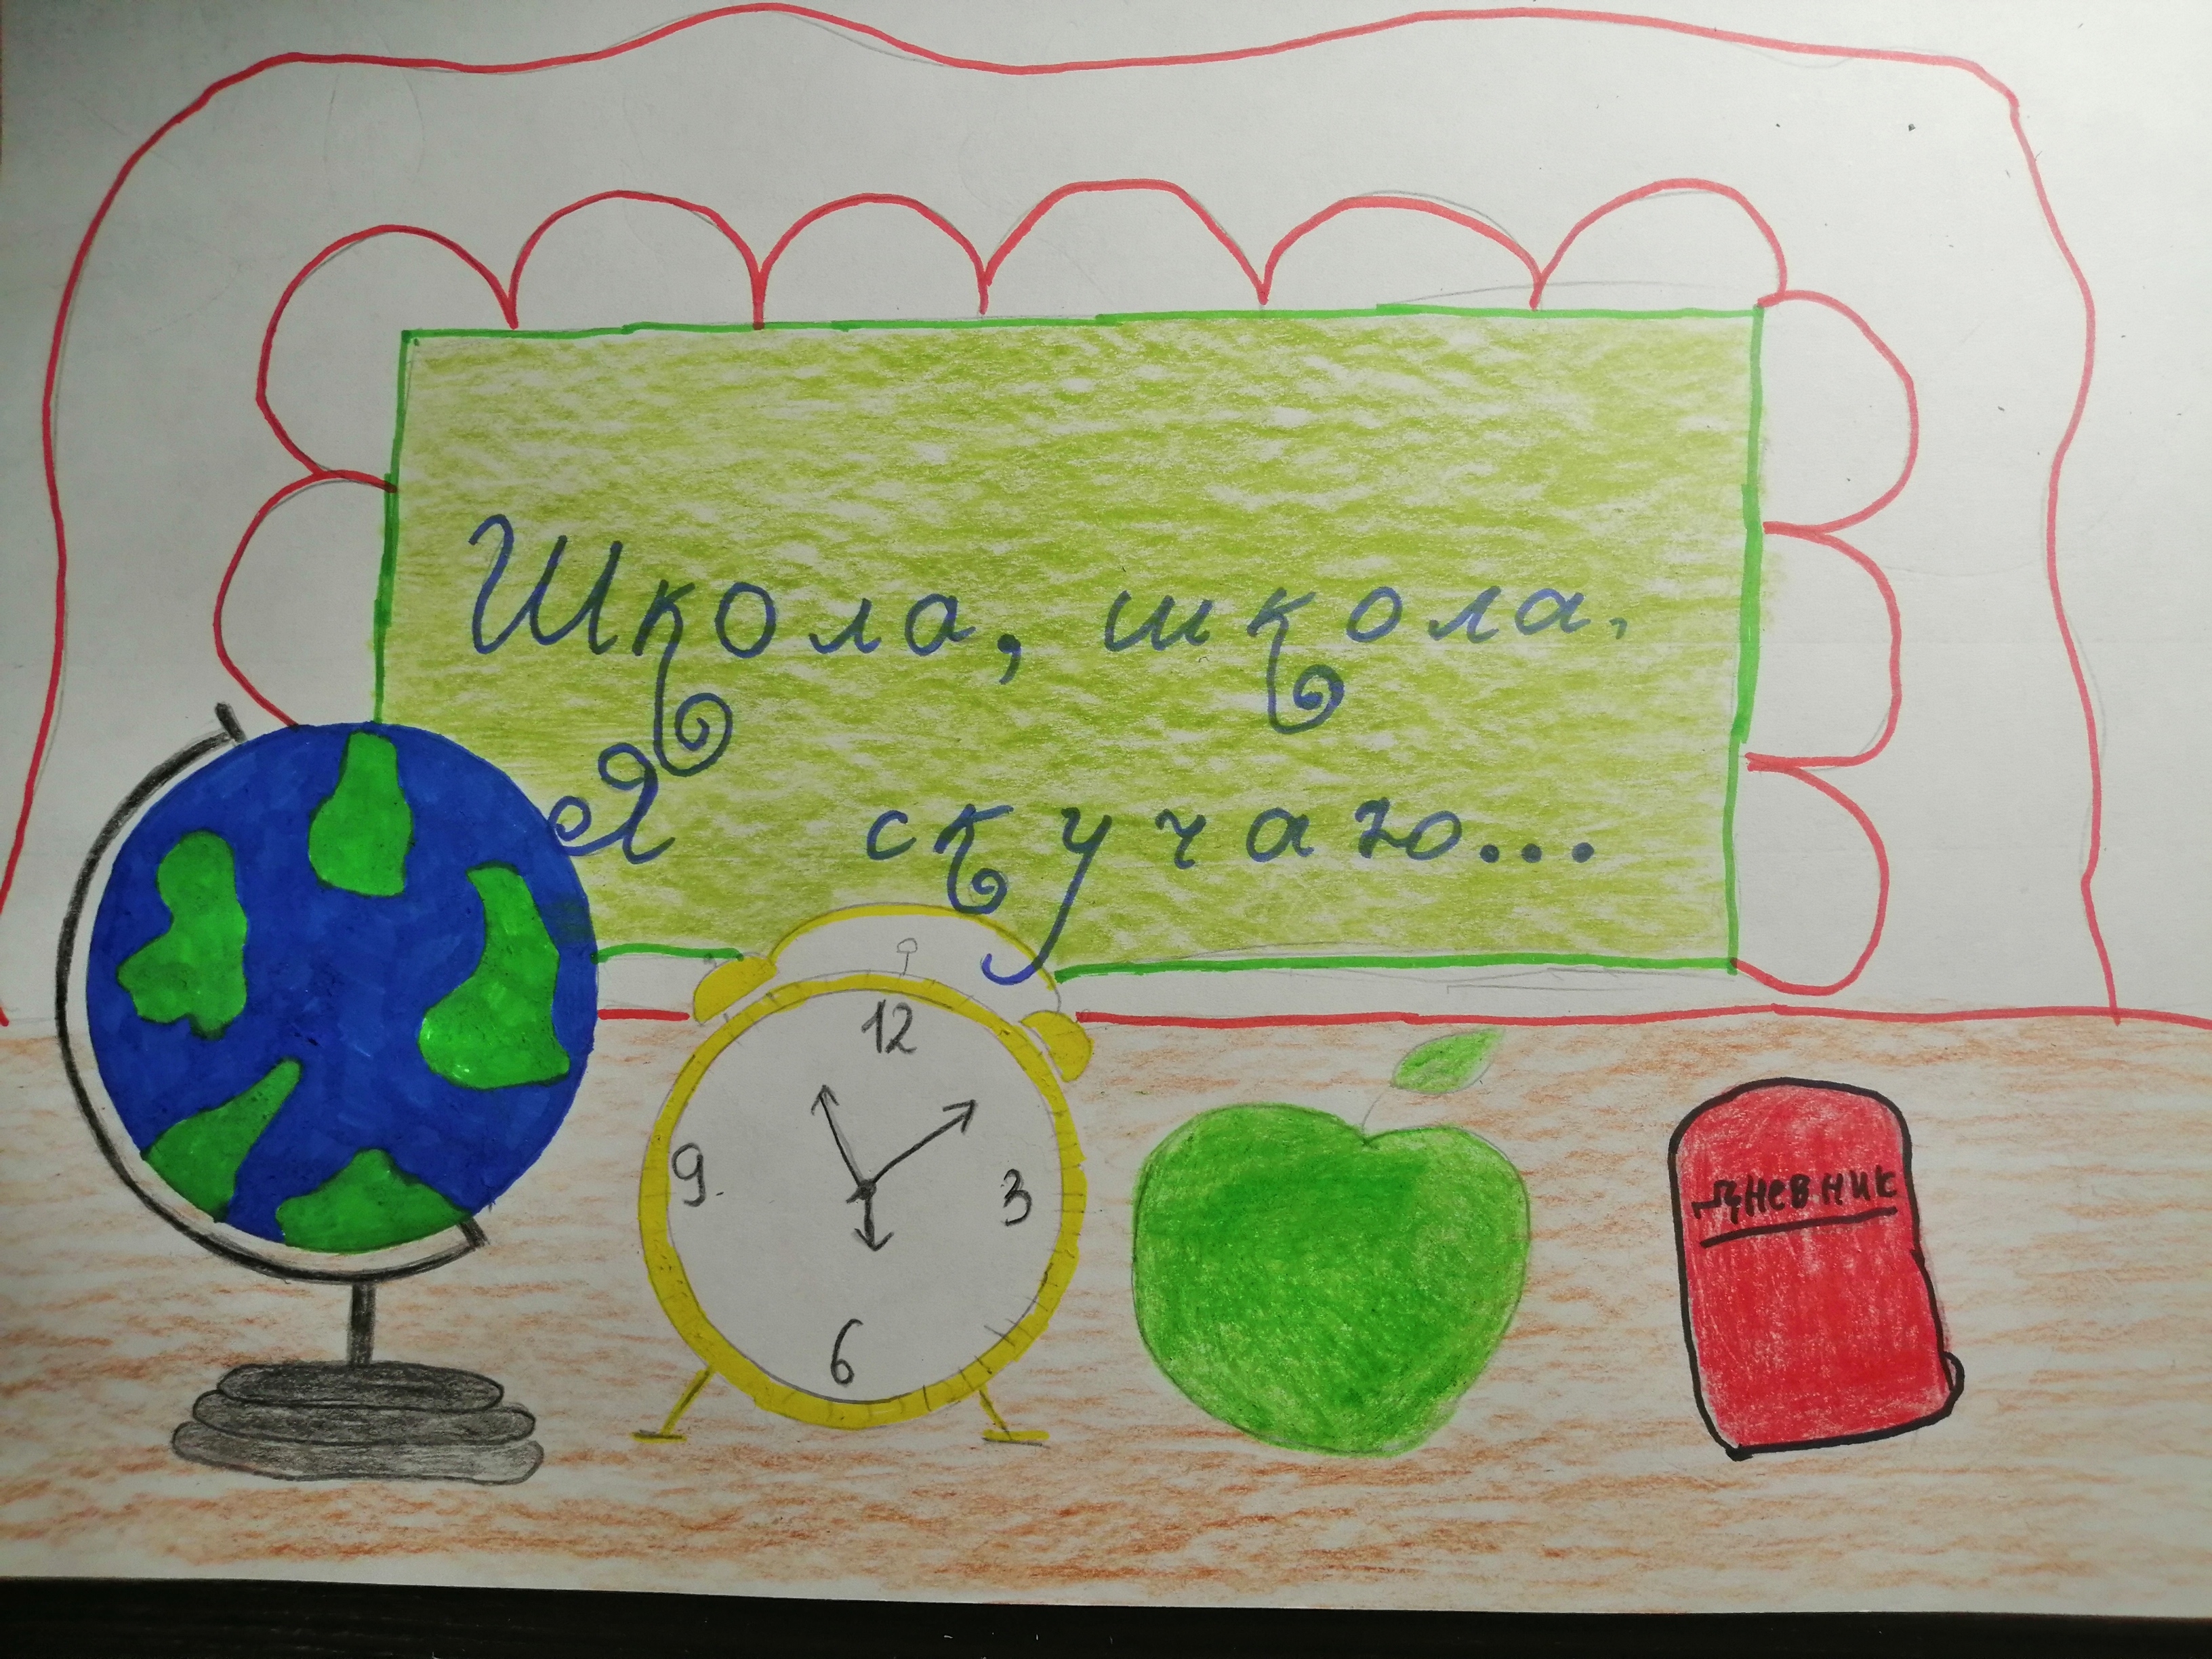 Школа, школа,
Я скучаю...
12
9.
3
6
Дневник